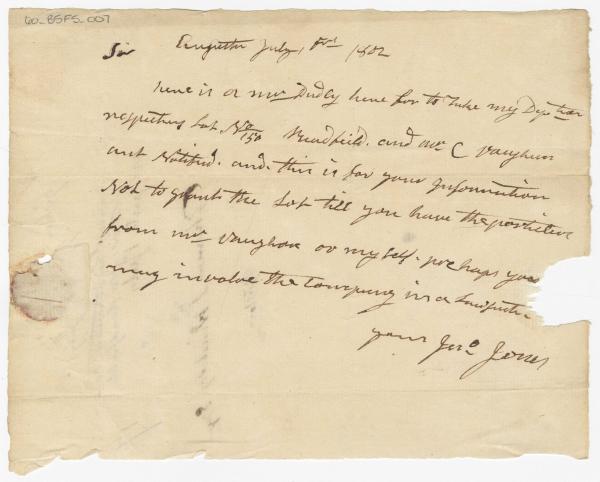 60_BSFS_007
Sir Augusta July, 1st 1802
here is a mr Dudly here for to take my Deposition
respecting Lot. No 150 Readfield. and mr C Vaughan
ant Notified. and this is for your Information
Not to grant the Lot till you have the
from mr Vaughan or my self. perhaps you
may involve the Company in a
yours Jno Jones